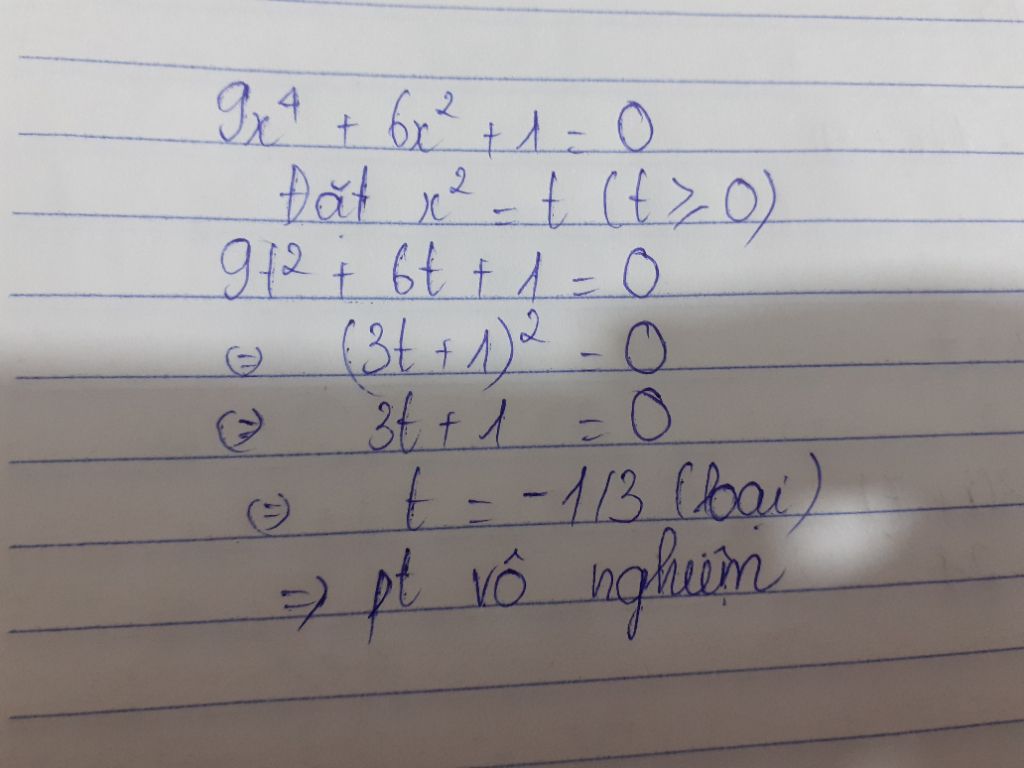 9x⁴ + 6x² + 1 = 0
Đặt x² = t (t ≥ 0)
9t² + 6t + 1 = 0
⇔ (3t + 1)² = 0
⇔ 3t + 1 = 0
⇔ t = -1/3 (loại)
⇒ pt vô nghiệm